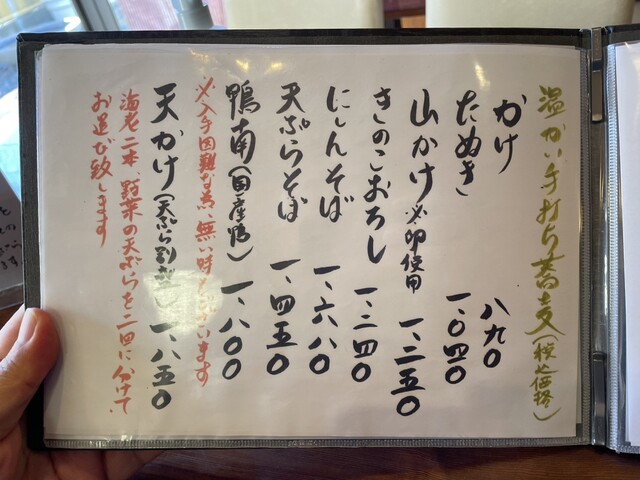 温かい手打ち蕎麦(税込価格)
かけ 八九〇
たぬき 一、〇四〇
山かけ ※卵使用 一、二五〇
きのこおろし 一、二四〇
にしんそば 一、六八〇
天ぷらそば 一、四五〇
鴨南(国産鴨) 一、八〇〇
※入手困難な為、無い時もございます
天かけ(天ぷら別盛) 一、八五〇
海老二本、野菜の天ぷらを二回に分けて
お運び致します